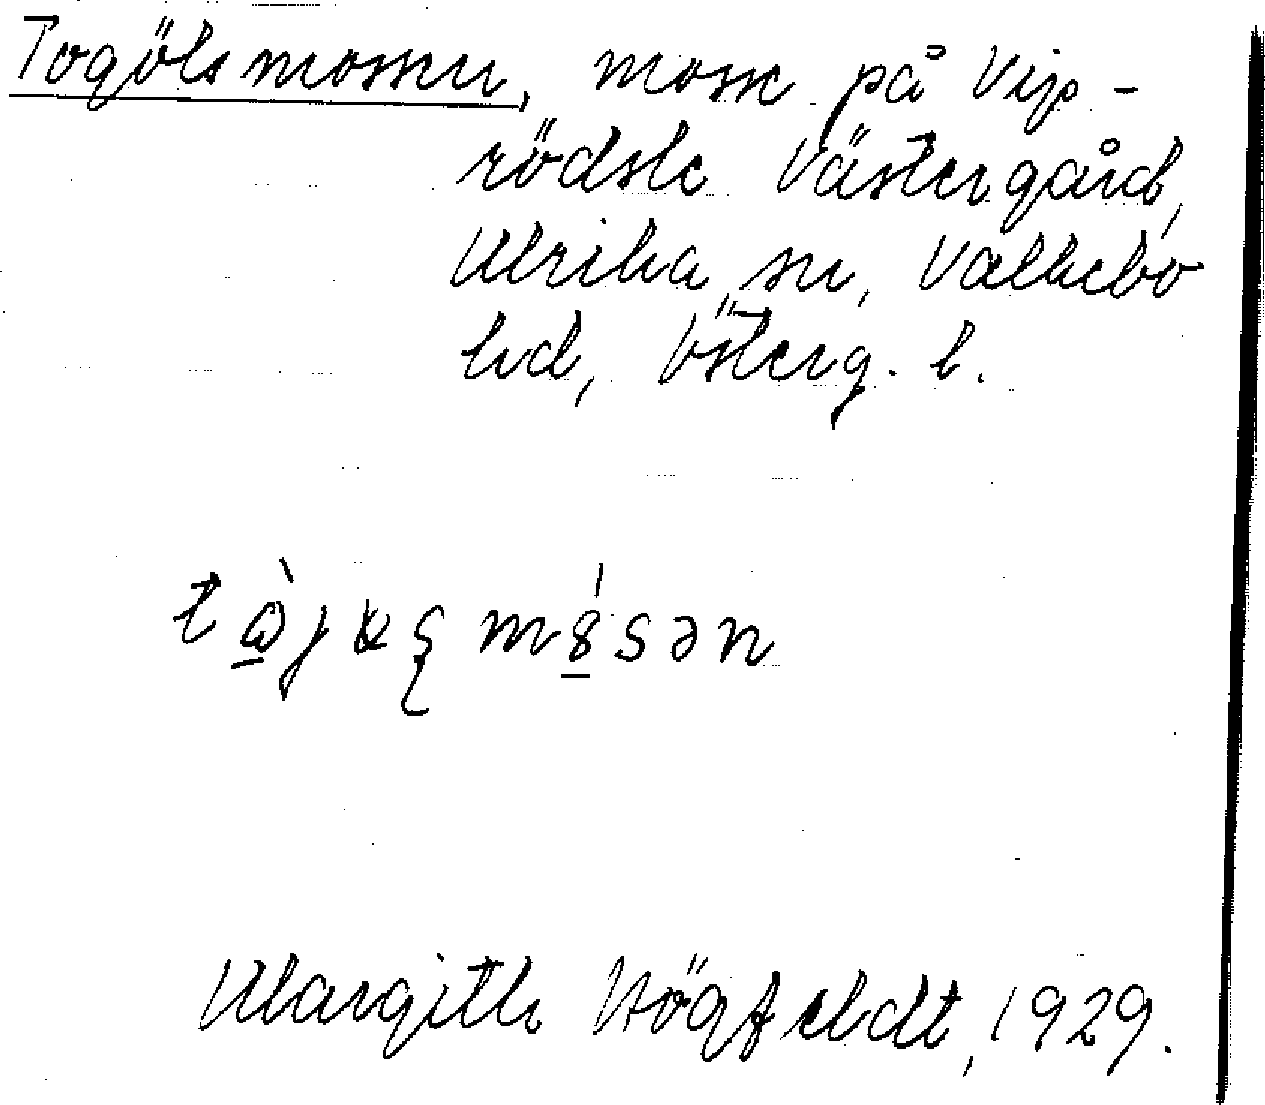 Togölsmossen, mosse på Vip-
rödsle Västergård,
Ulrika sn, Valkebo
hd, Österg. l.
Margith Högfeldt, 1929.